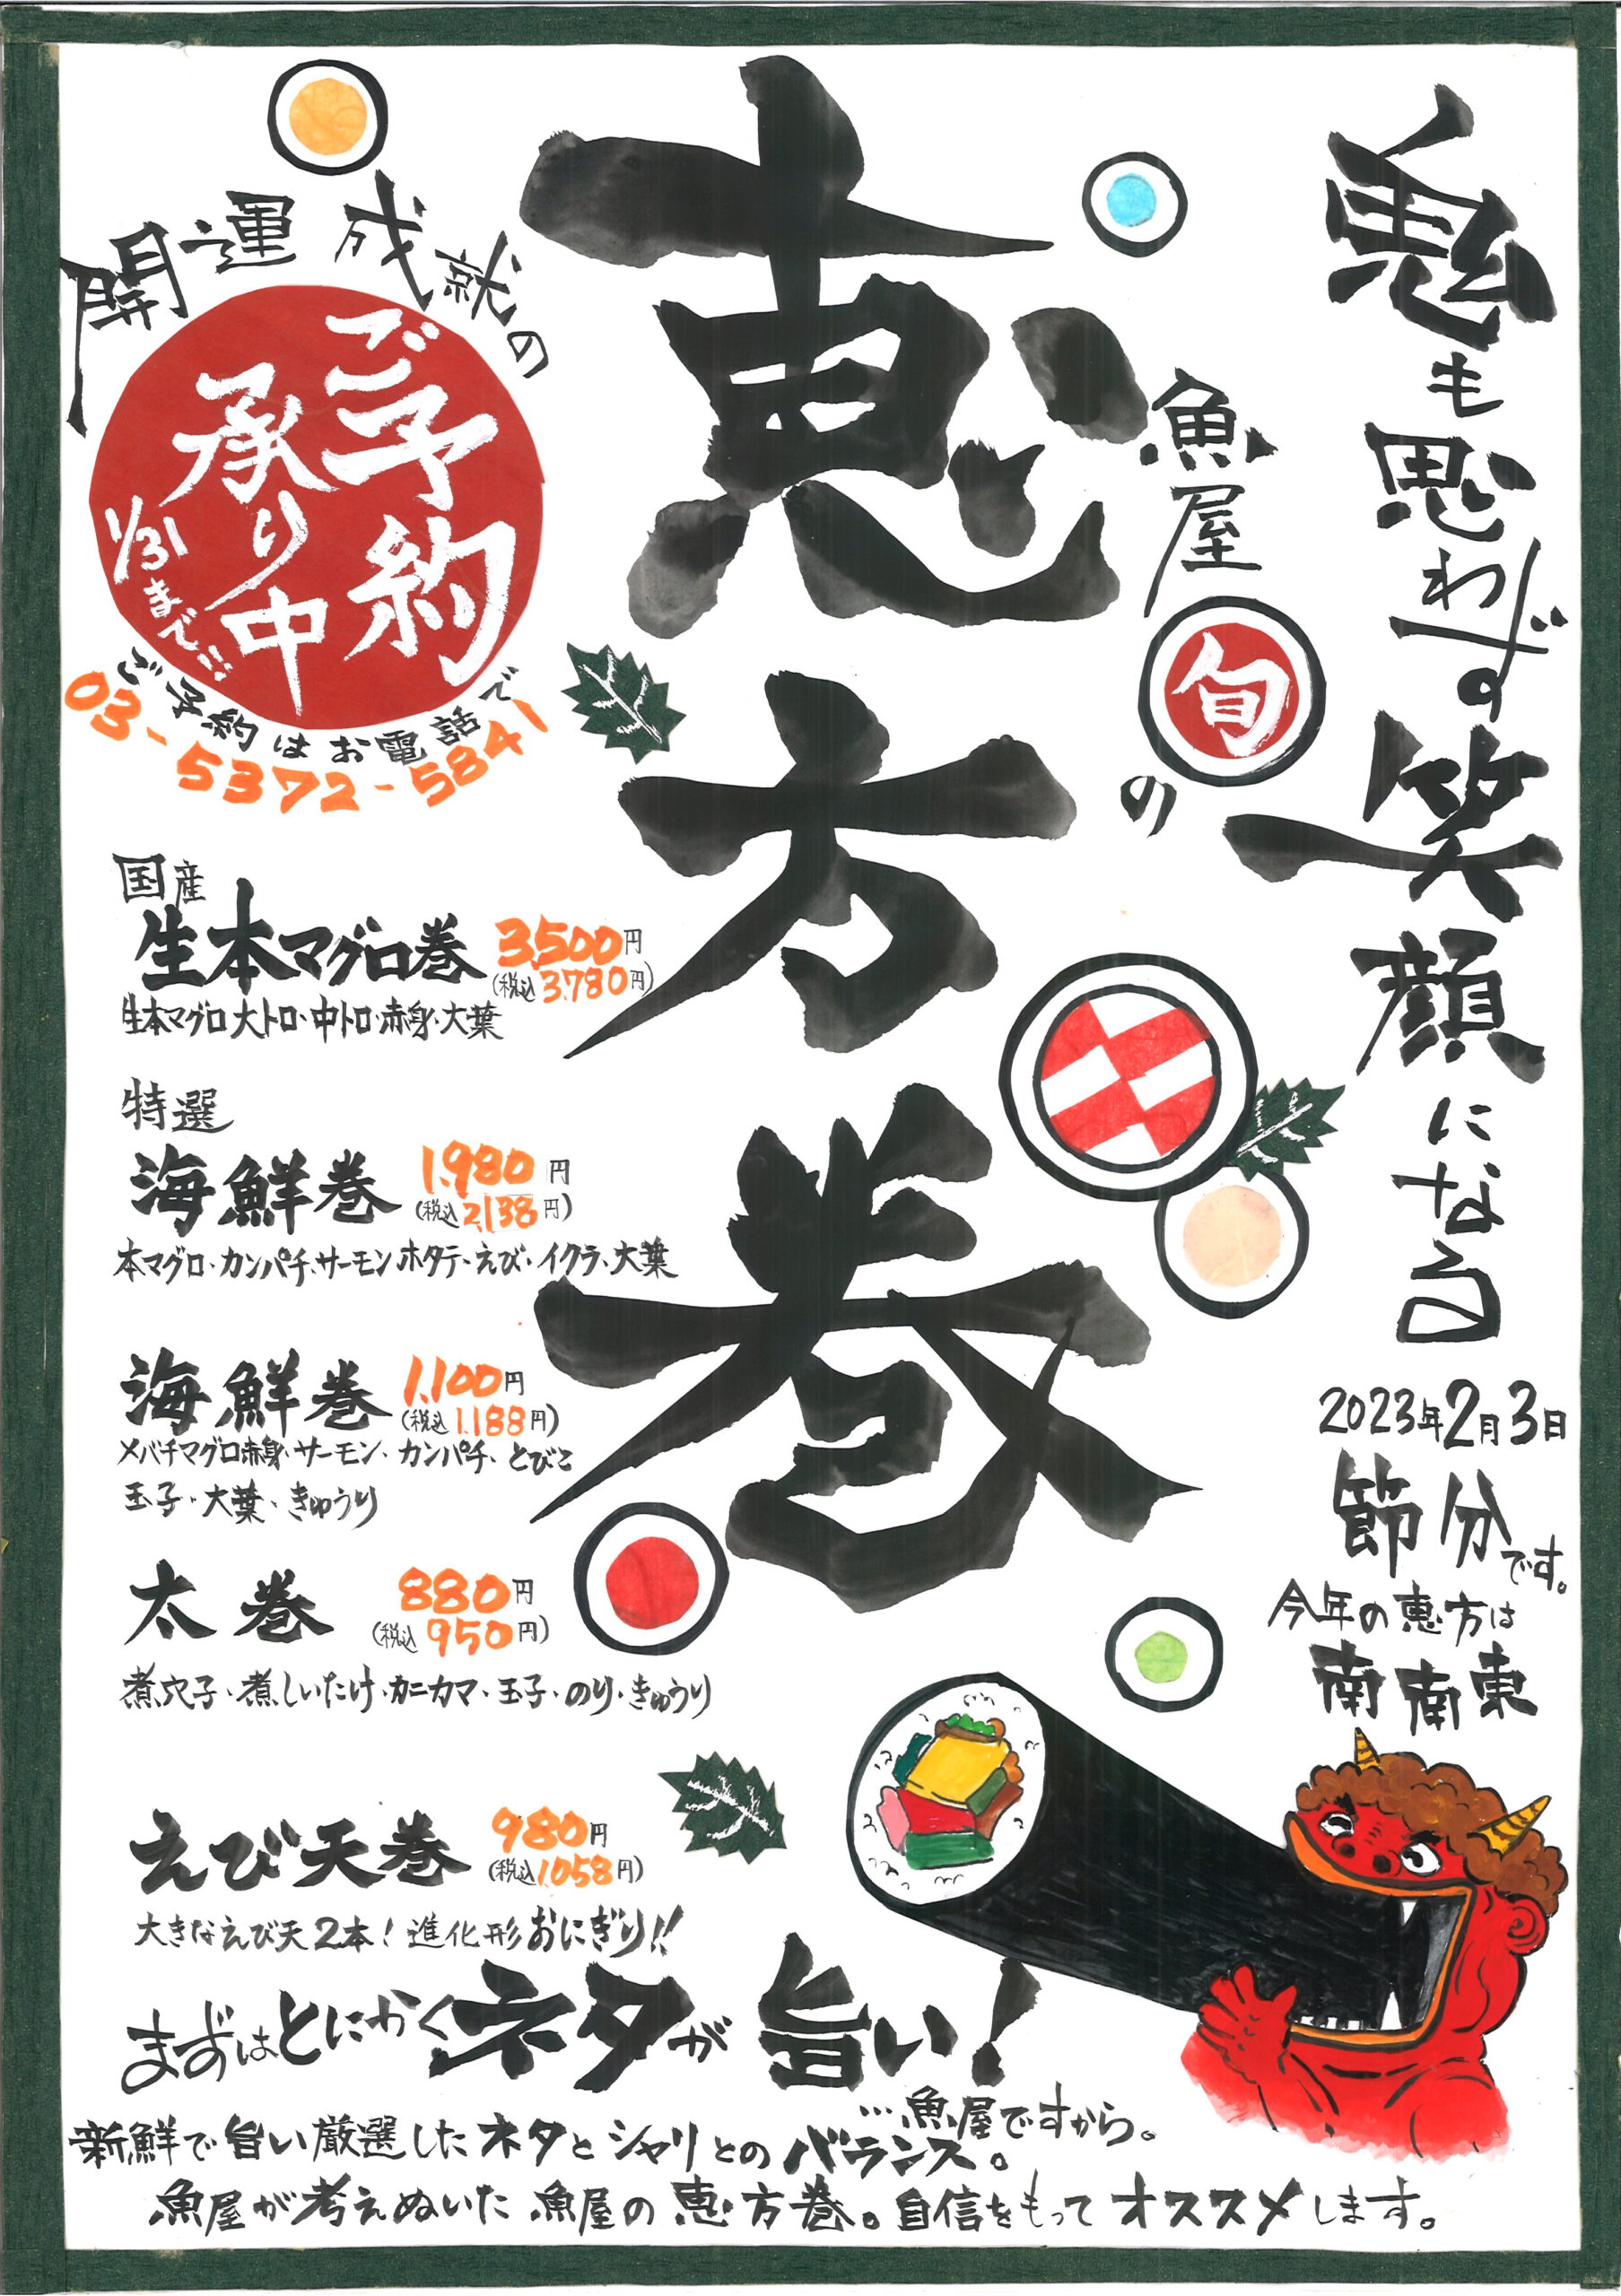 鬼も思わず笑顔になる
魚屋
旬
の
恵方巻
開運成就の
ご予約
承り中
1/31まで!!
ご予約はお電話で
03-5372-5841
国産
生本マグロ巻 3,500円
(税込3,780円)
生本マグロ大トロ・中トロ・赤身・大葉
特選
海鮮巻 1,980円
(税込2,138円)
本マグロ・カンパチ・サーモン・ホタテ・えび・イクラ・大葉
海鮮巻 1,100円
(税込1,188円)
メバチマグロ赤身・サーモン・カンパチ・とびこ
玉子・大葉・きゅうり
太巻 880円
(税込950円)
煮穴子・煮しいたけ・カニカマ・玉子・のり・きゅうり
えび天巻 980円
(税込1,058円)
大きなえび天2本!進化形おにぎり!!
2023年2月3日
節分です。
今年の恵方は
南南東
まずはとにかくネタが旨い!
…魚屋ですから。
新鮮で旨い厳選したネタとシャリとのバランス。
魚屋が考えぬいた魚屋の恵方巻。自信をもってオススメします。